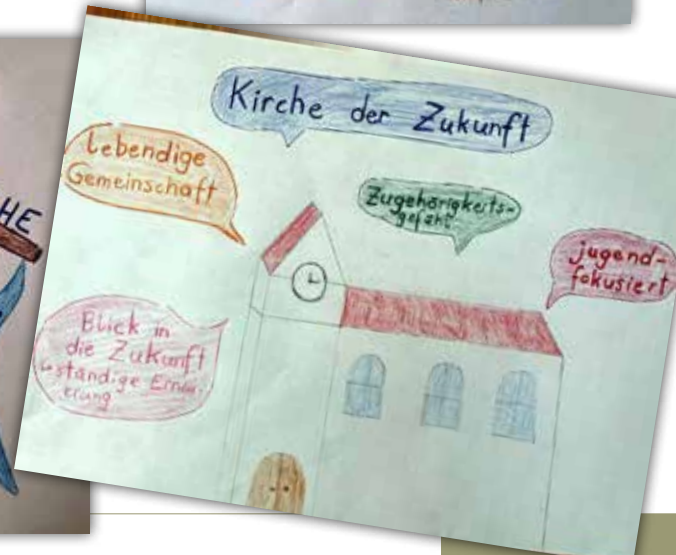 HE
Kirche der Zukunft
Lebendige
Gemeinschaft
Zugehörigkeits-
gefühl
jugend-
fokusiert
Blick in
die Zukunft
↳ ständige Erneu-
erung